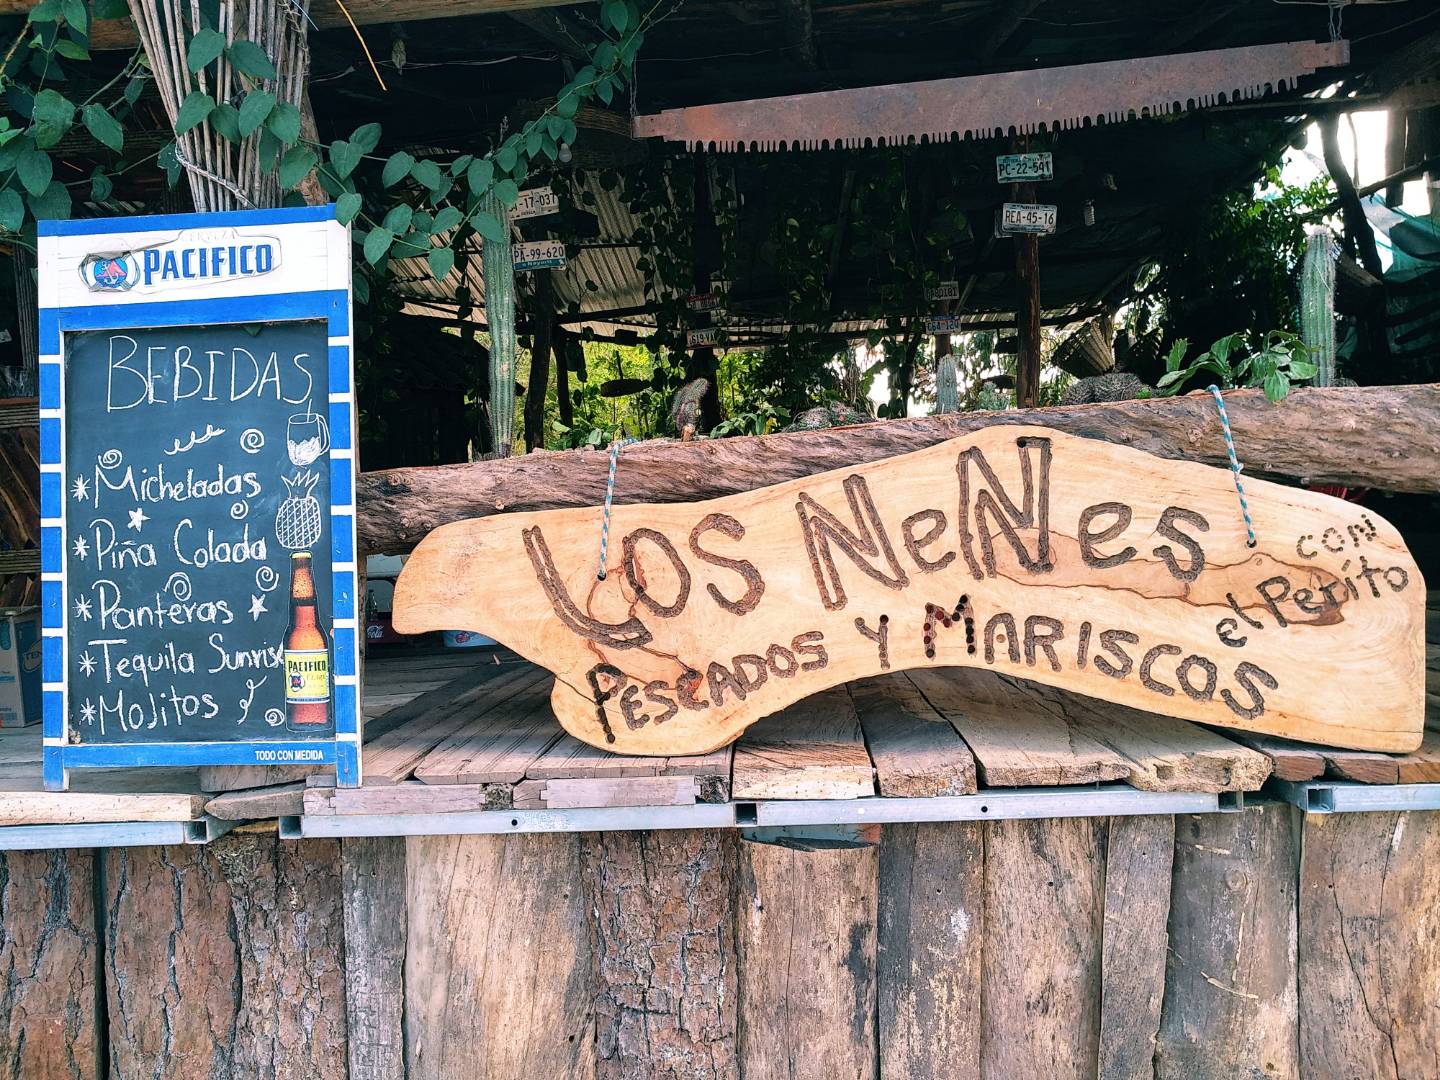 CERVEZA
PACIFICO
BEBIDAS
* Micheladas
* Piña Colada
* Panteras
* Tequila Sunrise
* Mojitos
PACIFICO
CLARA
TODO CON MEDIDA
LOS NeNes
PESCADOS Y MARISCOS
CON
el Perito
17-037
PA-99-620
PC-22-591
REA-45-16
Coca-Cola